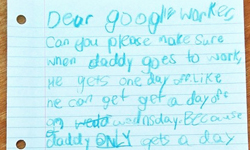 Dear google worker
Can you please make sure
when daddy goes to work,
He gets one day off. Like
he can get get a day off
on wednsday. BECause
daddy ONLY gets a day